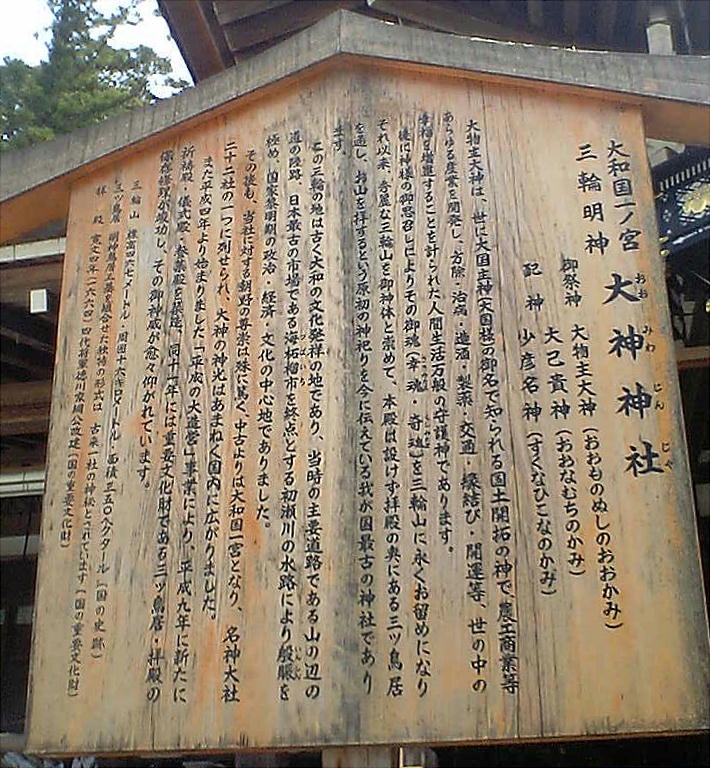 大和国一ノ宮 大神神社
おお みわ じん じゃ
三輪明神
御祭神 大物主大神（おおものぬしのおおかみ）
大己貴神（おおなむちのかみ）
配神 少彦名神（すくなひこなのかみ）
大物主大神は、世に大国主神（大国様）の御名で知られる国土開拓の神で、農工商業等
あらゆる産業を開発し、方除・治病・造酒・製薬・交通・縁結び・開運等、世の中の
幸福を増進することを計られた人間生活万般の守護神であります。
後に神様の御思召しによりその御魂（幸魂・奇魂）を三輪山に永くお留めになり
それ以来、秀麗な三輪山を御神体と崇めて、本殿は設けず拝殿の奥にある三ッ鳥居
を通し、お山を拝するという原初の神祀りを今に伝えている我が国最古の神社であり
ます。
この三輪の地は古く大和の文化発祥の地であり、当時の主要道路である山の辺の
道の陸路、日本最古の市場である海柘榴市を終点とする初瀬川の水路により殷賑を
つばいち
いんしん
極め、国家黎明期の政治・経済・文化の中心地でありました。
その後も、当社に対する朝野の尊崇は殊に篤く、中古よりは大和国一宮となり、名神大社
二十二社の一つに列せられ、大神の神光はあまねく国内に広がりました。
また平成四年より始まりました「平成の大造営」事業により、平成九年に新たに
祈祷殿・儀式殿・参集殿を築造、同十一年には重要文化財である三ツ鳥居・拝殿の
保存修理が竣功し、その御神威が愈々仰がれています。
三輪山 標高四六七メートル・周囲十六キロメートル・面積三五〇ヘクタール（国の史跡）
三ツ鳥居 明神鳥居三基を組合せた独特の形式は、古来一社の神秘とされています（国の重要文化財）
拝殿 寛文四年（一六六四）四代将軍徳川家綱公改建（国の重要文化財）